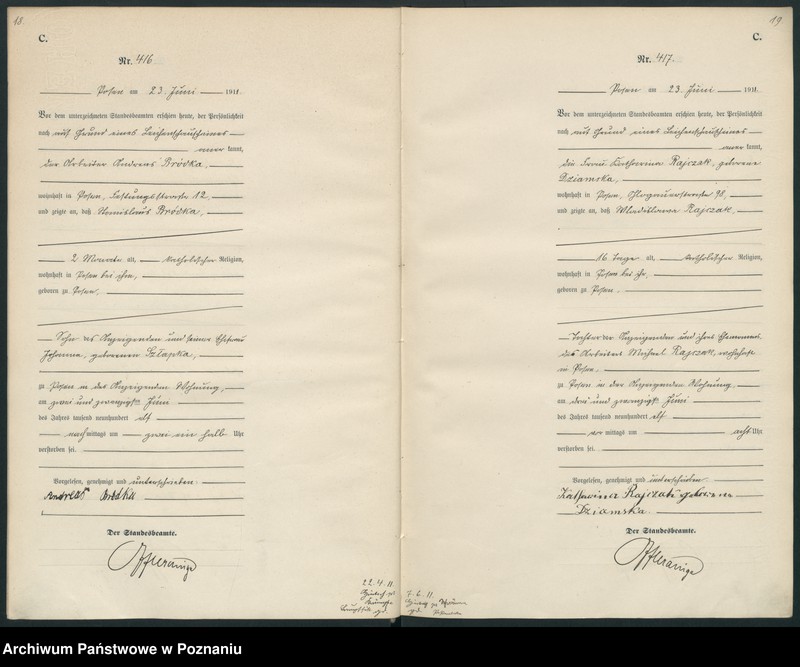 18.
C.
Nr. 416
Posen am 23. Juni 1911.
Vor dem unterzeichneten Standesbeamten erschien heute, der Persönlichkeit
nach auf Grund eines Leichenschauscheines
anerkannt,
der Arbeiter Andreas Bródka,
wohnhaft in Posen, Festungsstrasse 12,
und zeigte an, daß Stanislaus Bródka,
2 Monate alt, katholischer Religion,
wohnhaft in Posen bei ihm,
geboren zu Posen,
Sohn des Anzeigenden und seiner Ehefrau
Johanna, geborenen Szłapka,
zu Posen in des Anzeigenden Wohnung,
am zwei und zwanzigsten Juni
des Jahres tausend neunhundert elf
nachmittags um zwei ein halb Uhr
verstorben sei.
Vorgelesen, genehmigt und unterschrieben
Andreas Bródka
Der Standesbeamte.
22.4.11.
19
C.
Nr. 417.
Posen am 23. Juni 1911.
Vor dem unterzeichneten Standesbeamten erschien heute, der Persönlichkeit
nach auf Grund eines Leichenschauscheines
anerkannt,
die Frau Katharina Rajczak, geborene
Dziamska,
wohnhaft in Posen, Glogauerstrasse 98,
und zeigte an, daß Wladislawa Rajczak,
16 Tage alt, katholischer Religion,
wohnhaft in Posen bei ihr,
geboren zu Posen.
Tochter der Anzeigenden und ihres Ehemannes,
des Arbeiters Michael Rajczak, wohnhaft
in Posen,
zu Posen in der Anzeigenden Wohnung,
am drei und zwanzigsten Juni
des Jahres tausend neunhundert elf
vormittags um acht Uhr
verstorben sei.
Vorgelesen, genehmigt und unterschrieben
Katharina Rajczak geborene
Dziamska
Der Standesbeamte.
7.6.11.
Archiwum Państwowe w Poznaniu